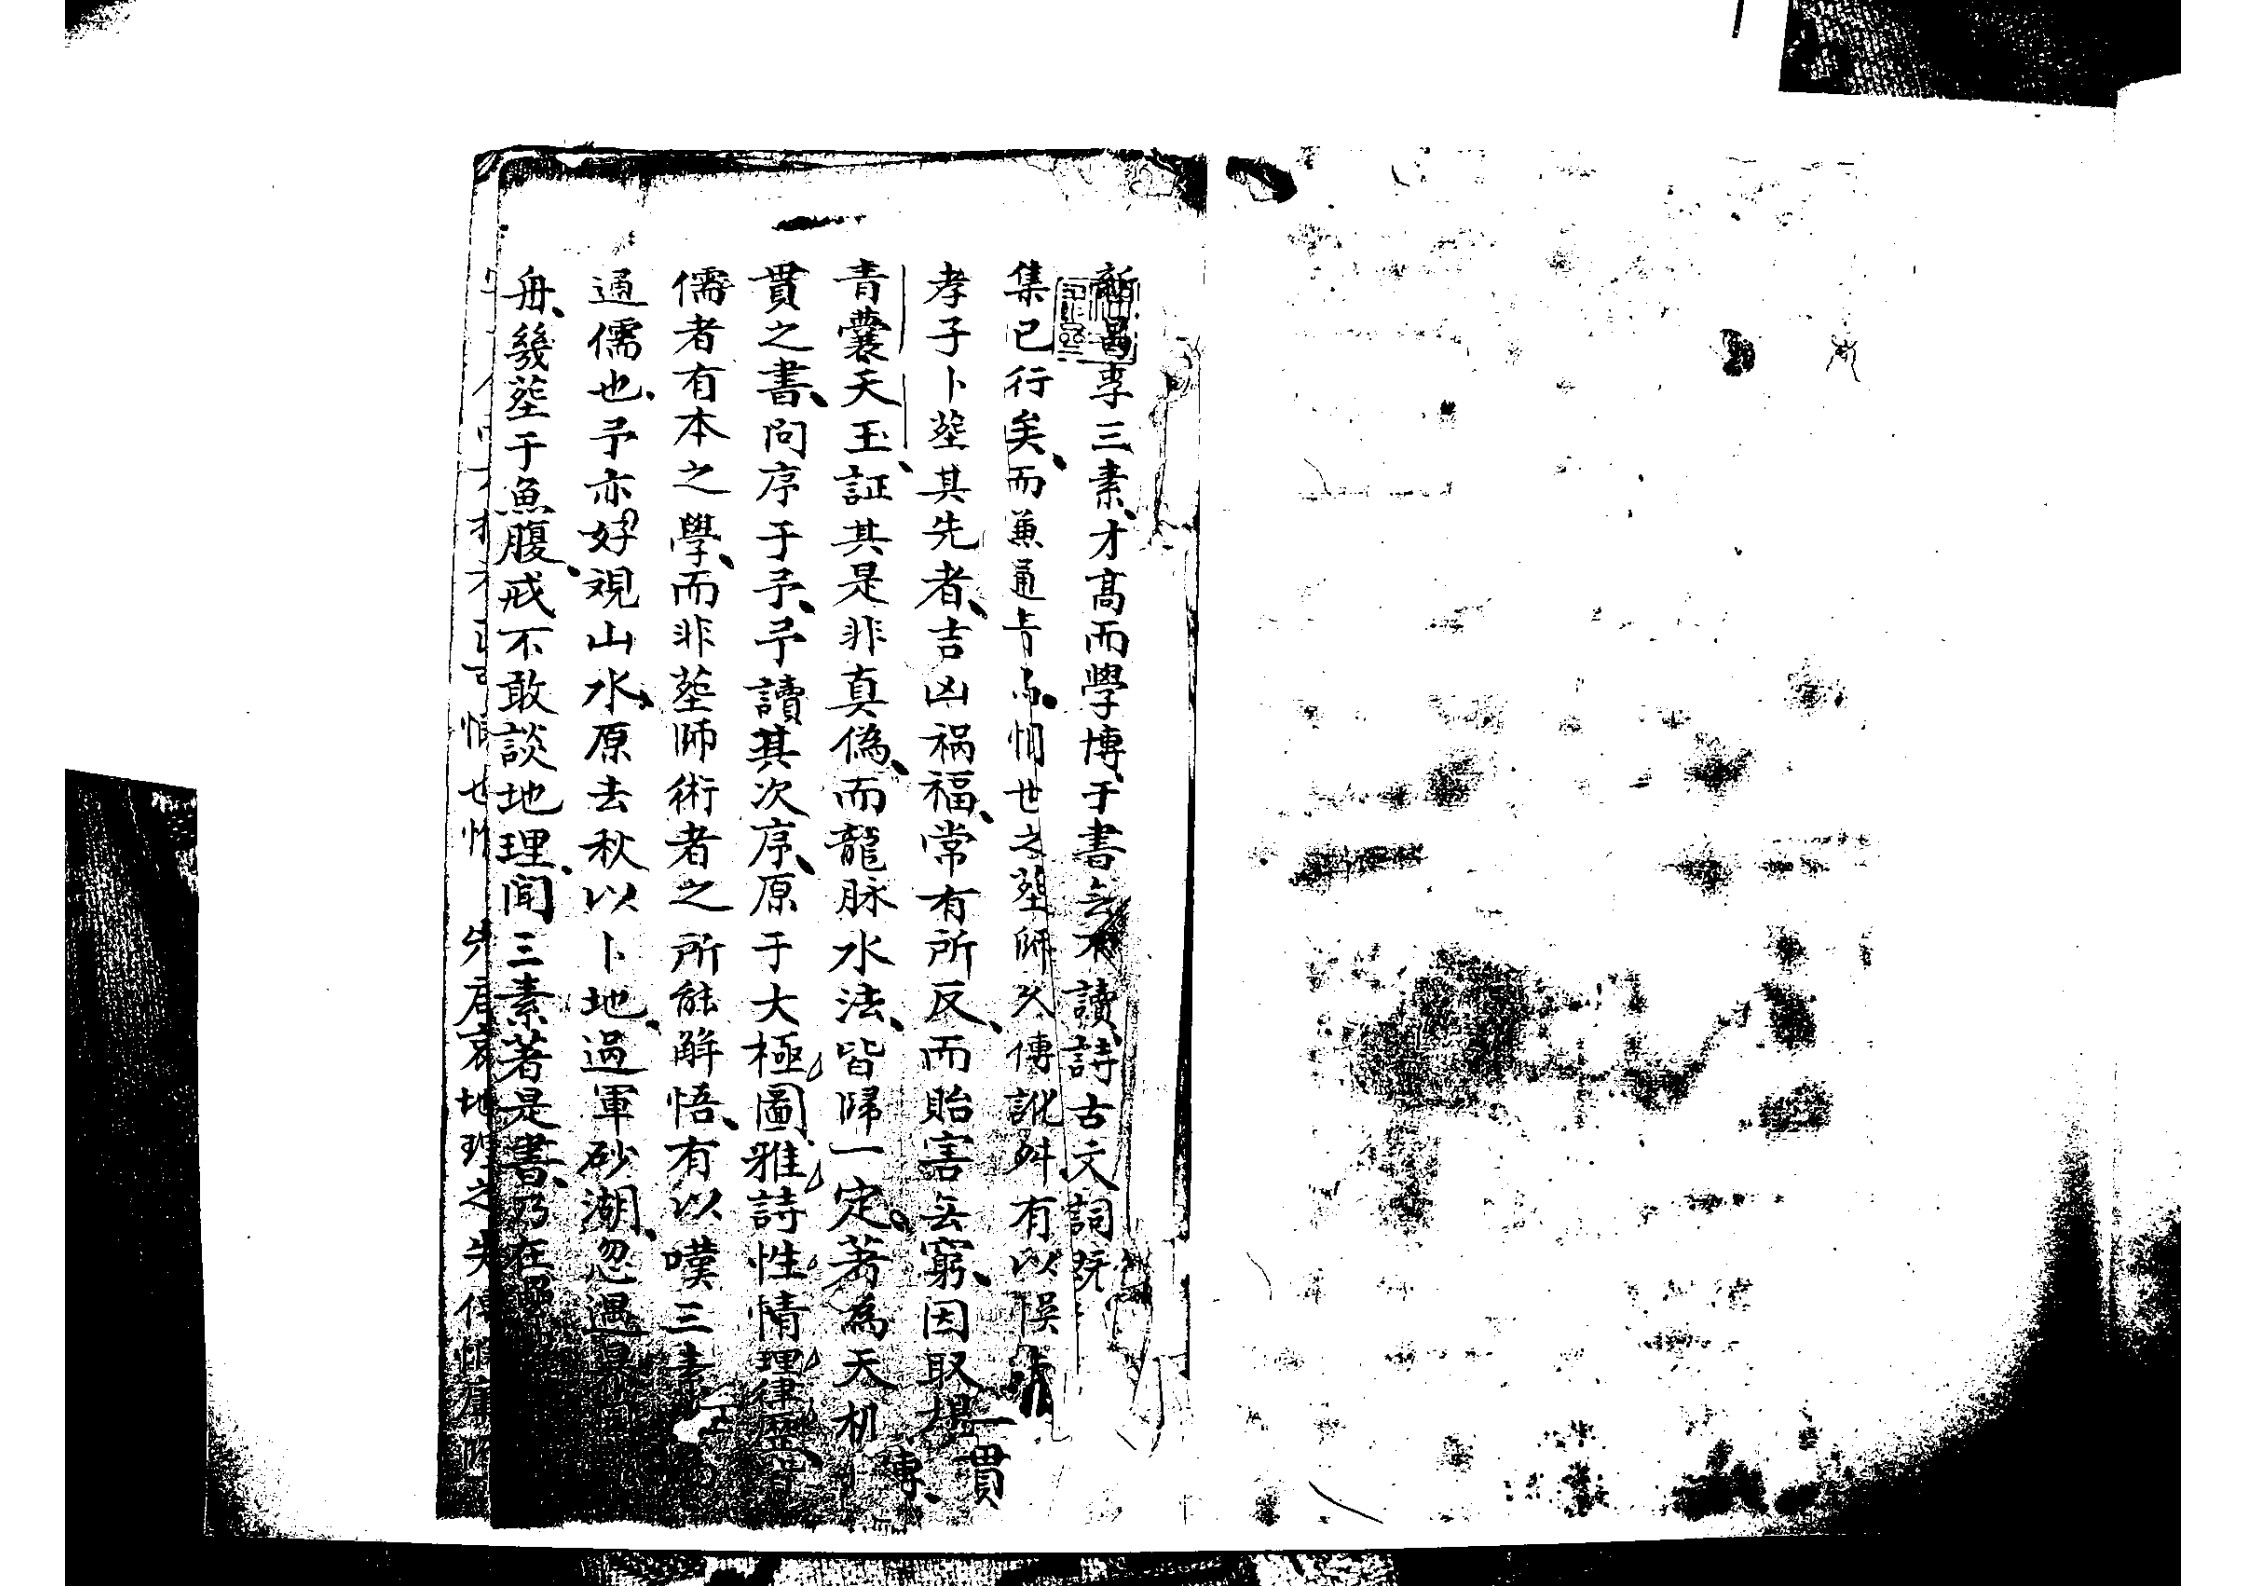 新昌李三素才高而學博于書無不讀詩古文詞既
集已行矣而兼通青烏憫世之塟師久傳訛舛有以悞
孝子卜塟其先者吉凶禍福常有所反而貽害無窮因取楊
青囊天玉証其是非真偽而龍脉水法皆歸一定著為天机一貫
貫之書問序于予予讀其次序原于大極圖雅詩性情理律歷
儒者有本之學而非塟師術者之所能解悟有以嘆三素
通儒也予亦好覌山水原去秋以卜地過軍砂湖忽遇暴
舟幾塟于魚腹戒不敢談地理聞三素著是書乃在